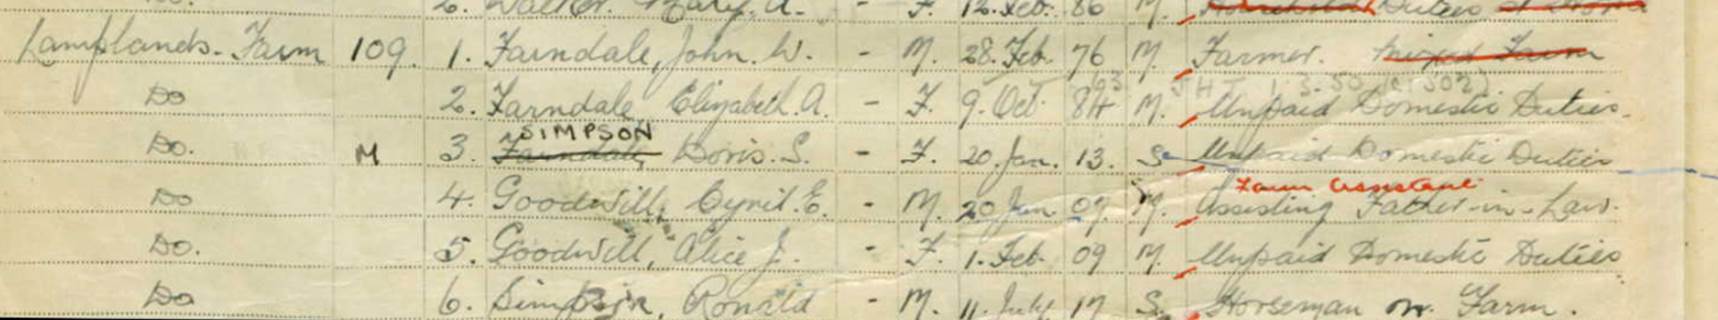 2. Walker, Mary. A. - F. 12. Feb. 86 M. Duties
Lamplands. Farm 109. 1. Farndale, John. W. - M. 28. Feb. 76 M. Farmer. Mixed Farm
Do 2. Farndale, Elizabeth. A. - F. 9. Oct. 84 M. Unpaid Domestic Duties.
SIMPSON
Do. M 3. Farndale, Doris. S. - F. 20. Jan. 13. S Unpaid Domestic Duties
Farm Assistant
Do 4. Goodwill, Cyril. E. - M. 20 Jan 07. M. Assisting Father-in-Law.
Do. 5. Goodwill, Alice J. - F. 1. Feb. 09 M. Unpaid Domestic Duties
Do 6. Simpson, Ronald - M. 11. July 17 S. Horseman on Farm.